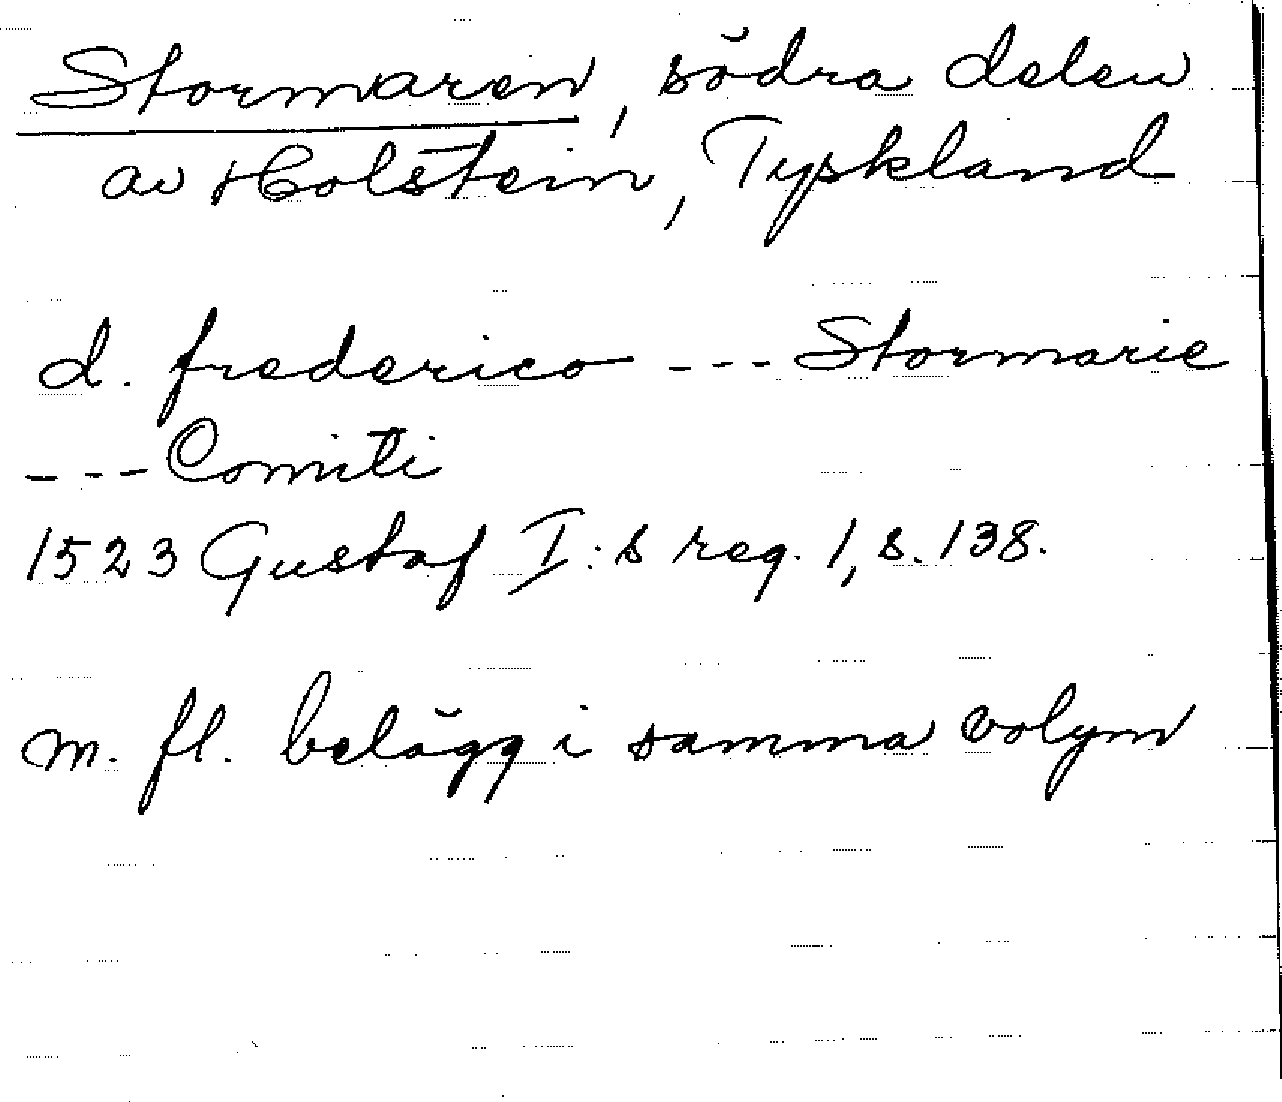 Stormaren, södra delen
av Holstein, Tyskland
d. frederico --- Stormarie
--- Comiti
1523 Gustaf I:s reg. 1, s. 138.
m. fl. belägg i samma volym